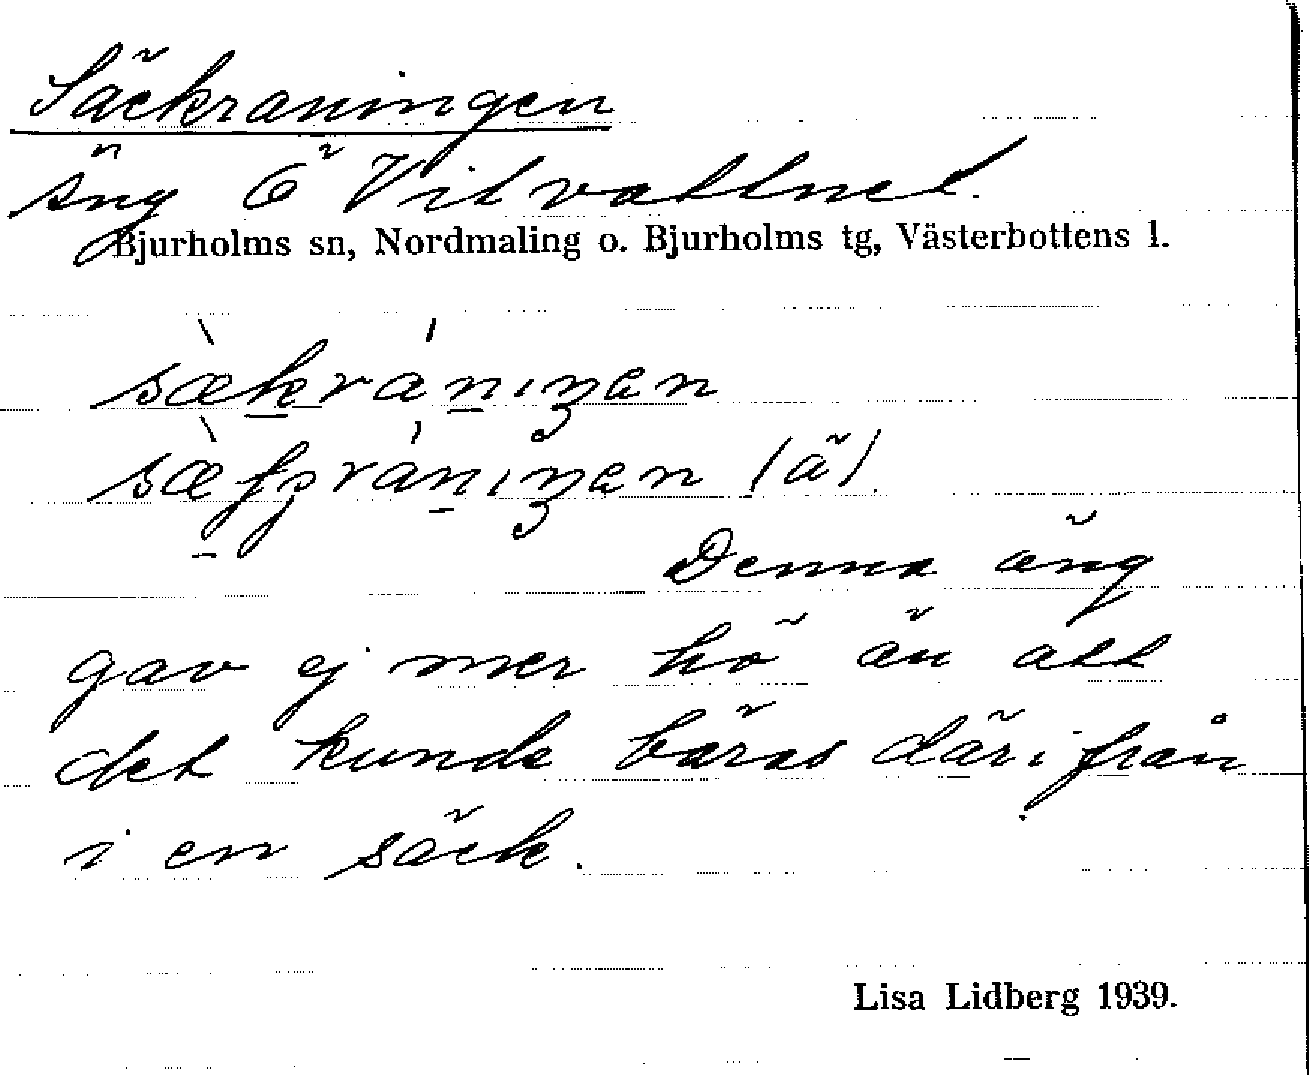 Säckraningen
äng Ö Vitvattnet.
Bjurholms sn, Nordmaling o. Bjurholms tg, Västerbottens l.
(ä).
Denna äng
gav ej mer hö än att
det kunde bäras därifrån
i en säck.
Lisa Lidberg 1939.